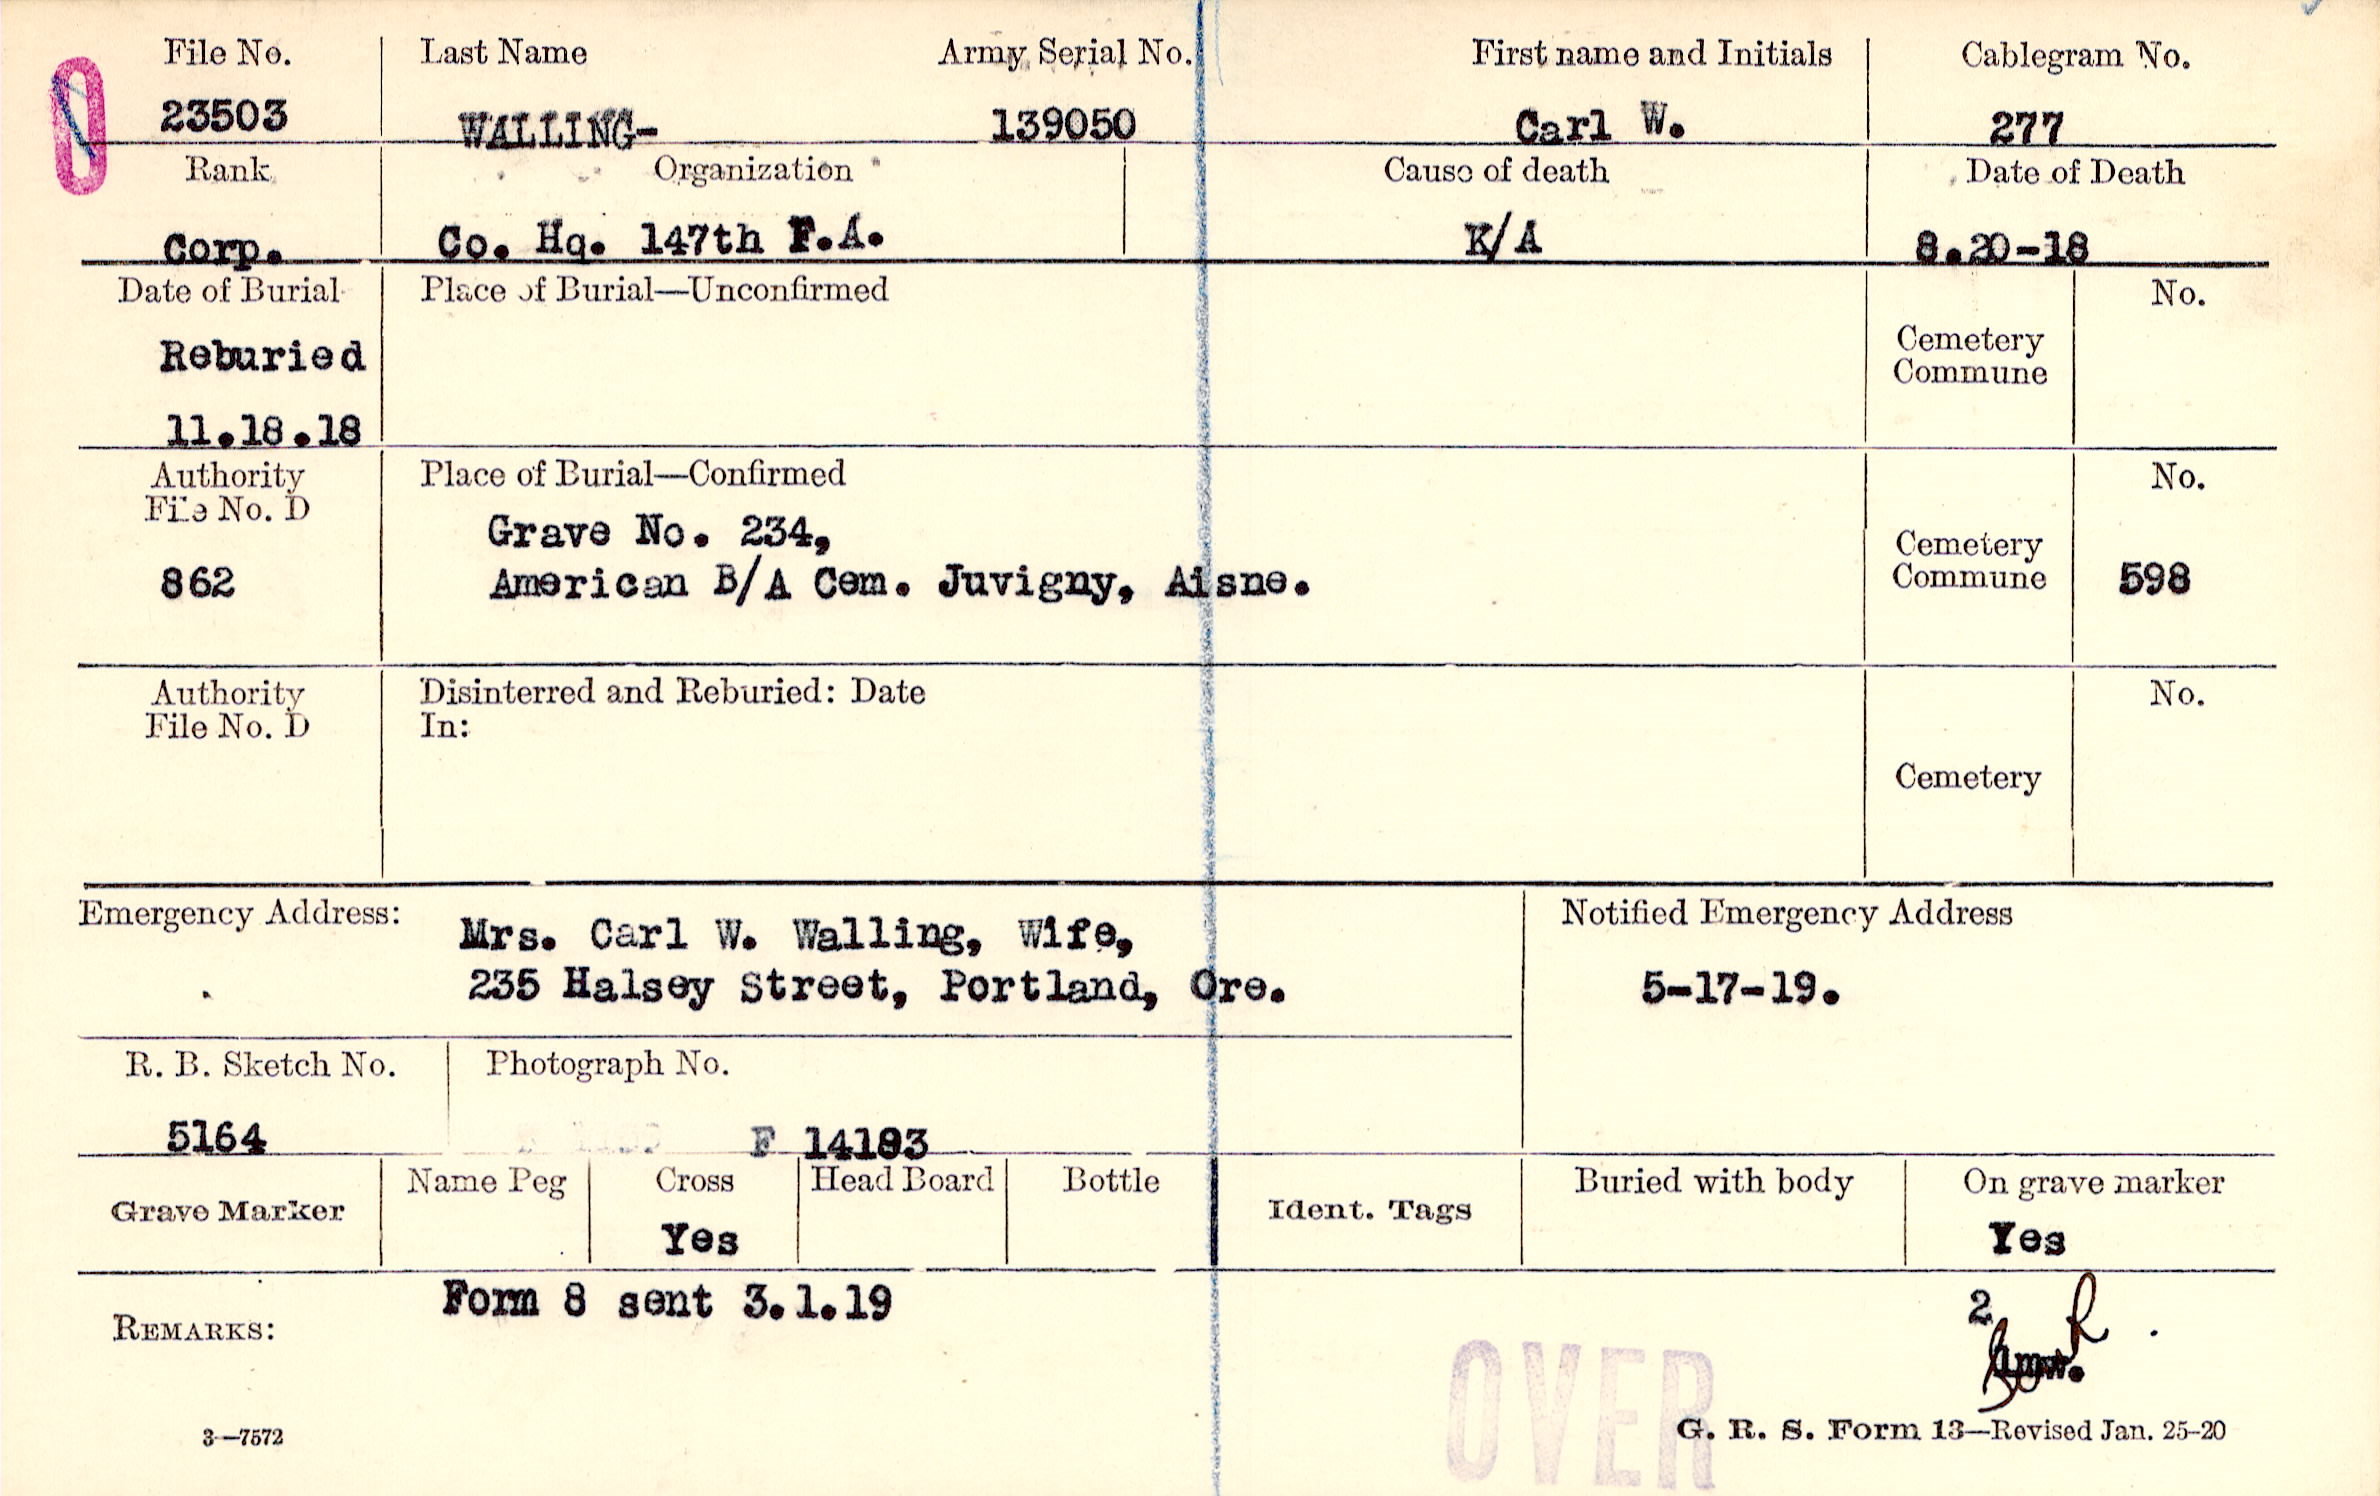 File No. Last Name Army Serial No. First name and Initials Cablegram No.
23503 WALLING- 139050 Carl W. 277
Rank Organization Cause of death Date of Death
Corp. Co. Hq. 147th F.A. K/A 8.20-18
Date of Burial Place of Burial—Unconfirmed No.
Reburied Cemetery
Commune
11.18.18
Authority Place of Burial—Confirmed No.
File No. D
Grave No. 234,
862 American B/A Cem. Juvigny, Aisne. Cemetery
Commune 598
Authority Disinterred and Reburied: Date No.
File No. D In:
Cemetery
Emergency Address: Mrs. Carl W. Walling, Wife, Notified Emergency Address
235 Halsey Street, Portland, Ore. 5-17-19.
R. B. Sketch No. Photograph No.
5164 F 14183
Grave Marker Name Peg Cross Head Board Bottle Ident. Tags Buried with body On grave marker
Yes Yes
REMARKS: Form 8 sent 3.1.19 2
OVER
3—7572 G. R. S. Form 13—Revised Jan. 25-20